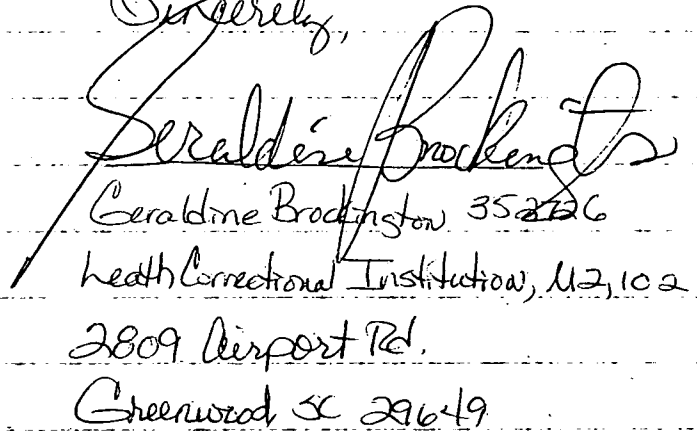 Sincerely,
Geraldine Brockington
Geraldine Brockington
Leath Correctional Institution, M2, 102
2809 Airport Rd.
Greenwood SC 29649